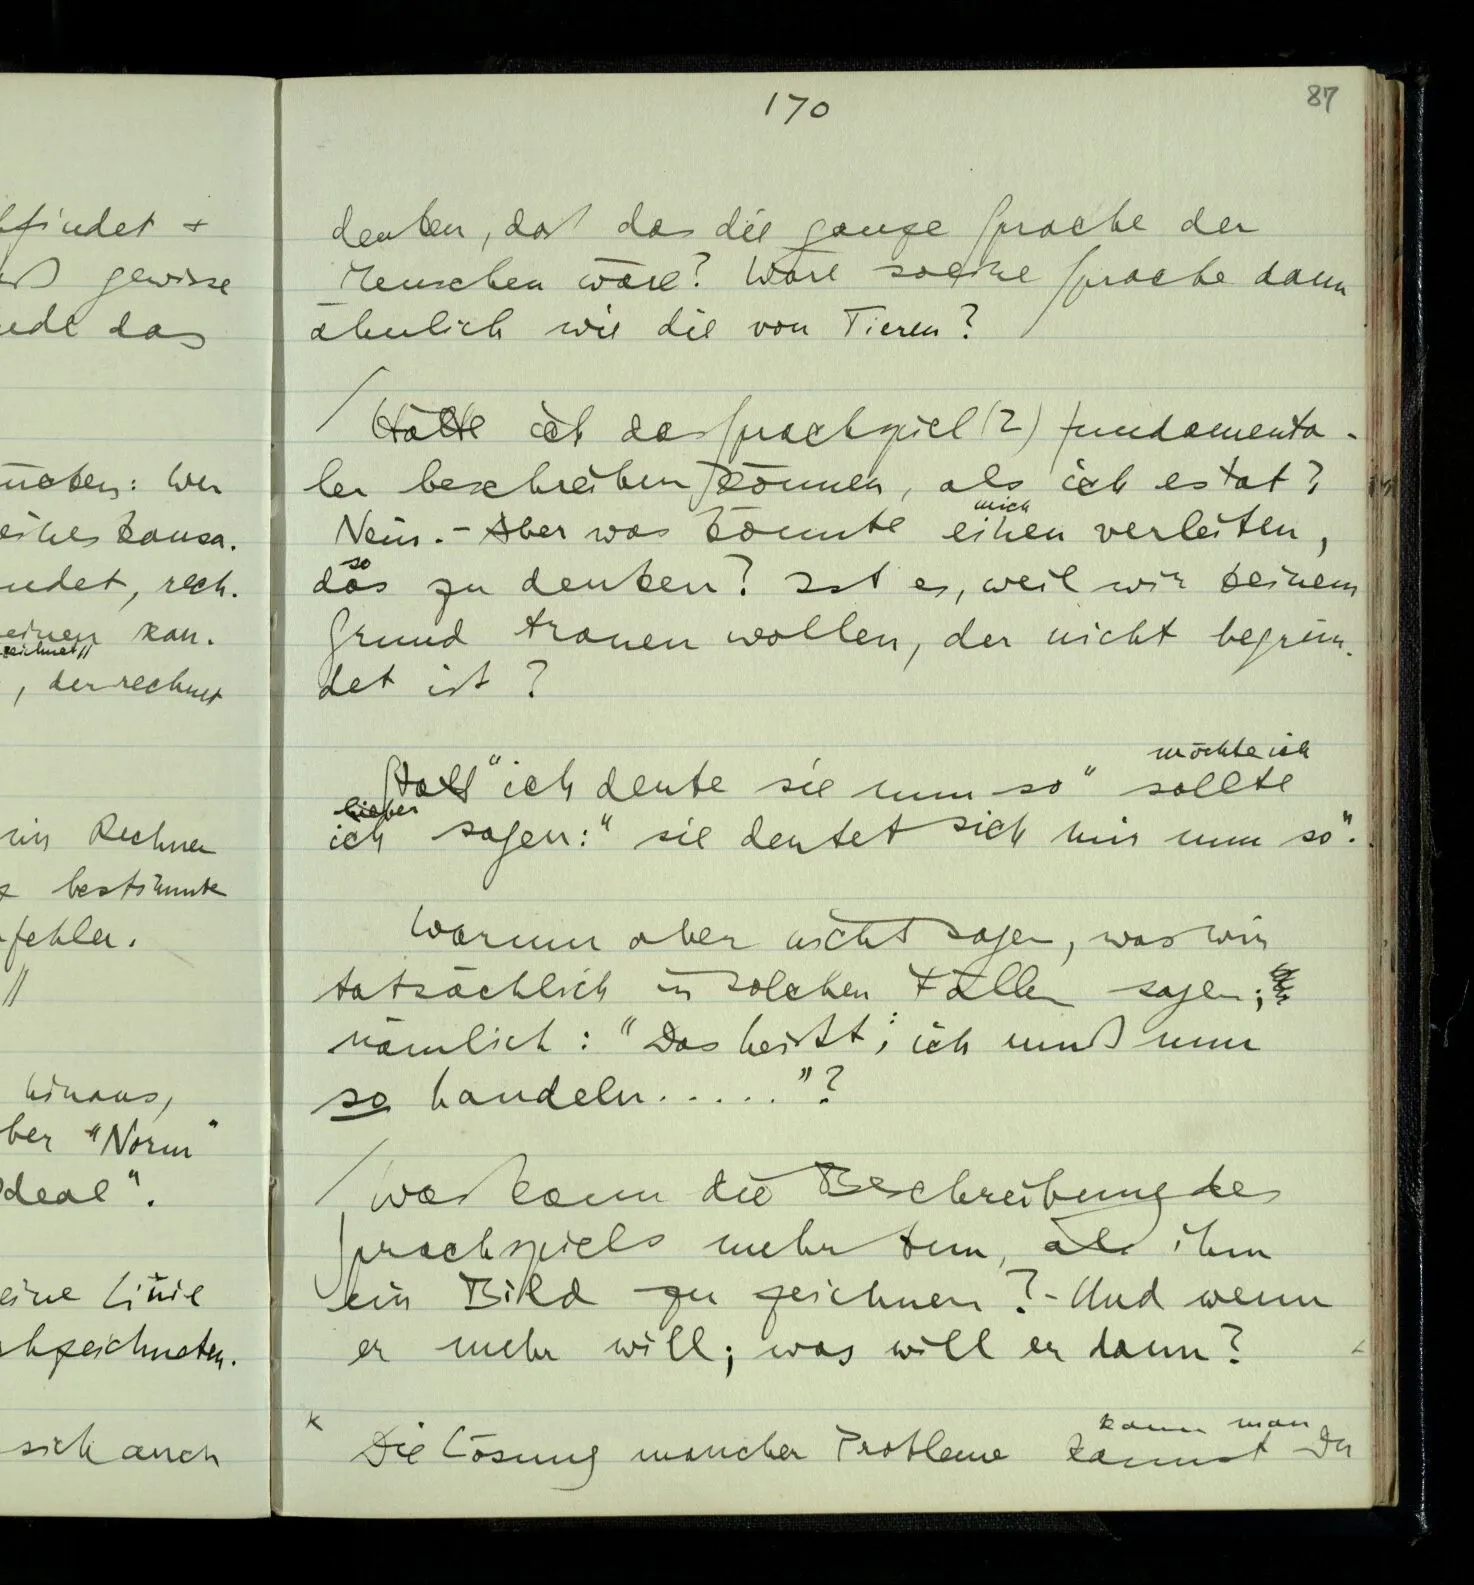 170
87
denken, daß das die ganze Sprache der
Menschen wäre? Wäre solche Sprache dann
ähnlich wie die von Tieren?
/ Hätte ich das Sprachspiel (2) fundamenta-
ler beschreiben können, als ich es tat?
mich
Nein. – Aber was könnte einen verleiten,
so
das zu denken? Ist es, weil wir keinem
Grund trauen wollen, der nicht begrün-
det ist?
möchte ich
Statt "ich deute sie nun so" sollte
lieber
ich sagen: "sie deutet sich mir nun so".
Warum aber nicht sagen, was wir
tatsächlich in solchen Fällen sagen;
nämlich: "Das heißt: ich muß nun
so handeln....."?
/ Was kann die Beschreibung des
Sprachspiels mehr tun, als ihm
ein Bild zu zeichnen? – Und wenn
er mehr will; was will er dann?
kann man
Die Lösung mancher Probleme kannst Du
findet +
gewisse
das
: Wer
eines kausa-
ndet, rech-
einen kau-
zeichnet //
, der rechnet
ein Rechnen
bestimmte
fehler.
//
hinaus,
ber "Norm"
deal".
eine Linie
bzeichneten.
sich auch